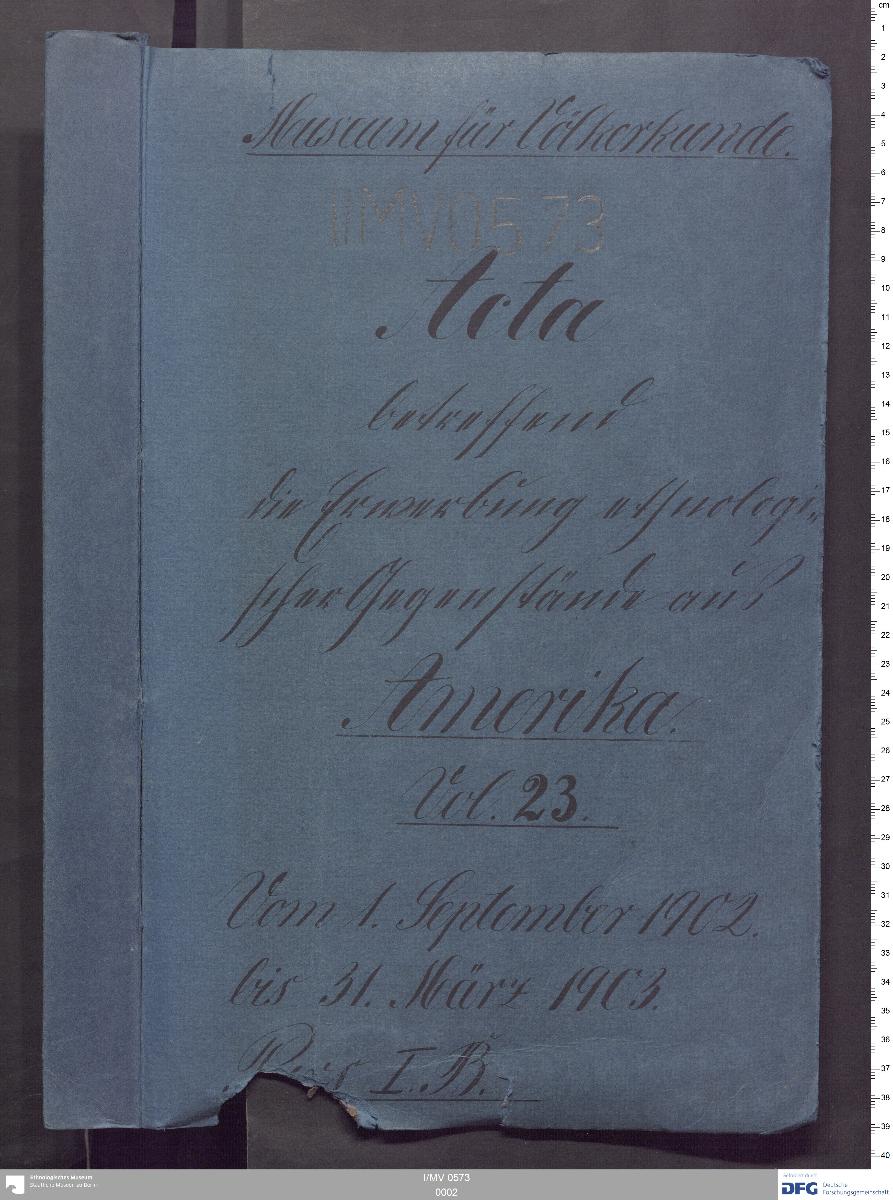 Museum für Völkerkunde.
IIMV0573
Acta
betreffend
die Erwerbung ethnologi-
scher Gegenstände aus
Amerika.
Vol. 23.
Vom 1. September 1902.
bis 31. März 1903.
Pars I. B.
cm
1
2
3
4
5
6
7
8
9
10
11
12
13
14
15
16
17
18
19
20
21
22
23
24
25
26
27
28
29
30
31
32
33
34
35
36
37
38
39
40
Ethnologisches Museum
Staatliche Museen zu Berlin
I/MV 0573
0002
Gefördert durch
DFG Deutsche
Forschungsgemeinschaft